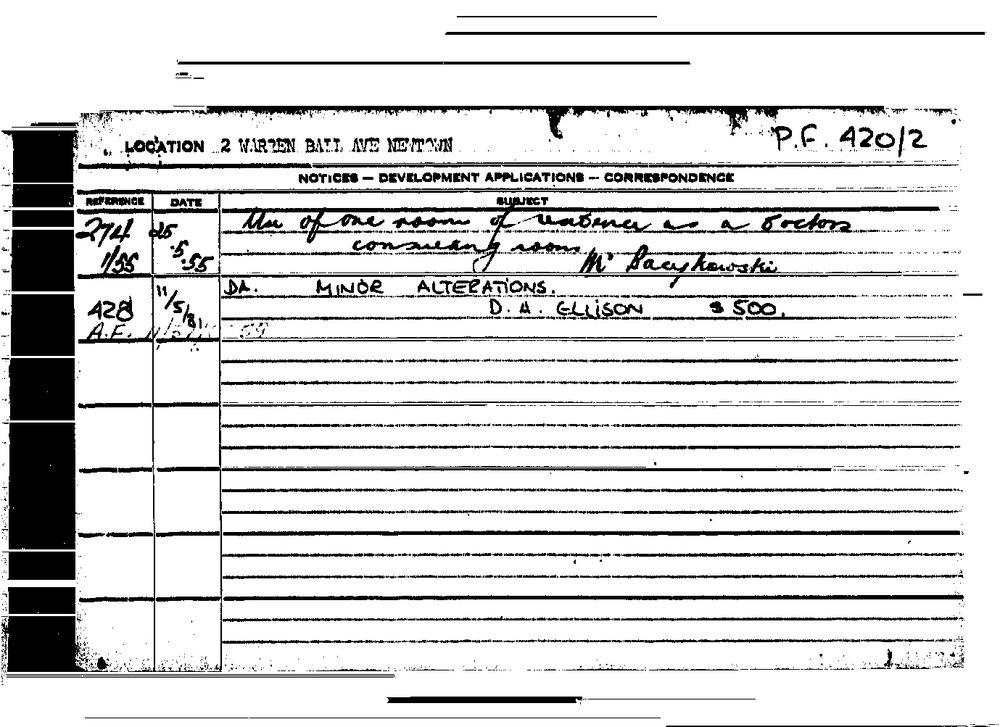 LOCATION 2 WARREN BALL AVE NEWTOWN P.F. 420/2
NOTICES — DEVELOPMENT APPLICATIONS — CORRESPONDENCE
REFERENCE DATE SUBJECT
274 25 Use of one room of residence as a doctors
1/55 .5.55 consulting room
Mr Bacykowski
DA. MINOR ALTERATIONS.
428 11/5/81 D. A. ELLISON $500.
A.F.